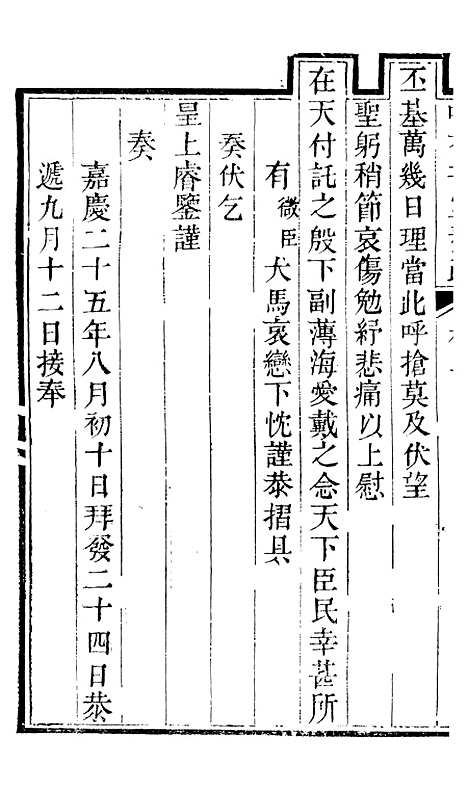 丕基萬幾日理當此呼搶莫及伏望
聖躬稍節哀傷勉紓悲痛以上慰
在天付託之殷下副薄海愛戴之念天下臣民幸甚所
有微臣犬馬哀戀下忱謹恭摺具
奏伏乞
皇上睿鑒謹
奏
嘉慶二十五年八月初十日拜發二十四日恭
遞九月十二日接奉